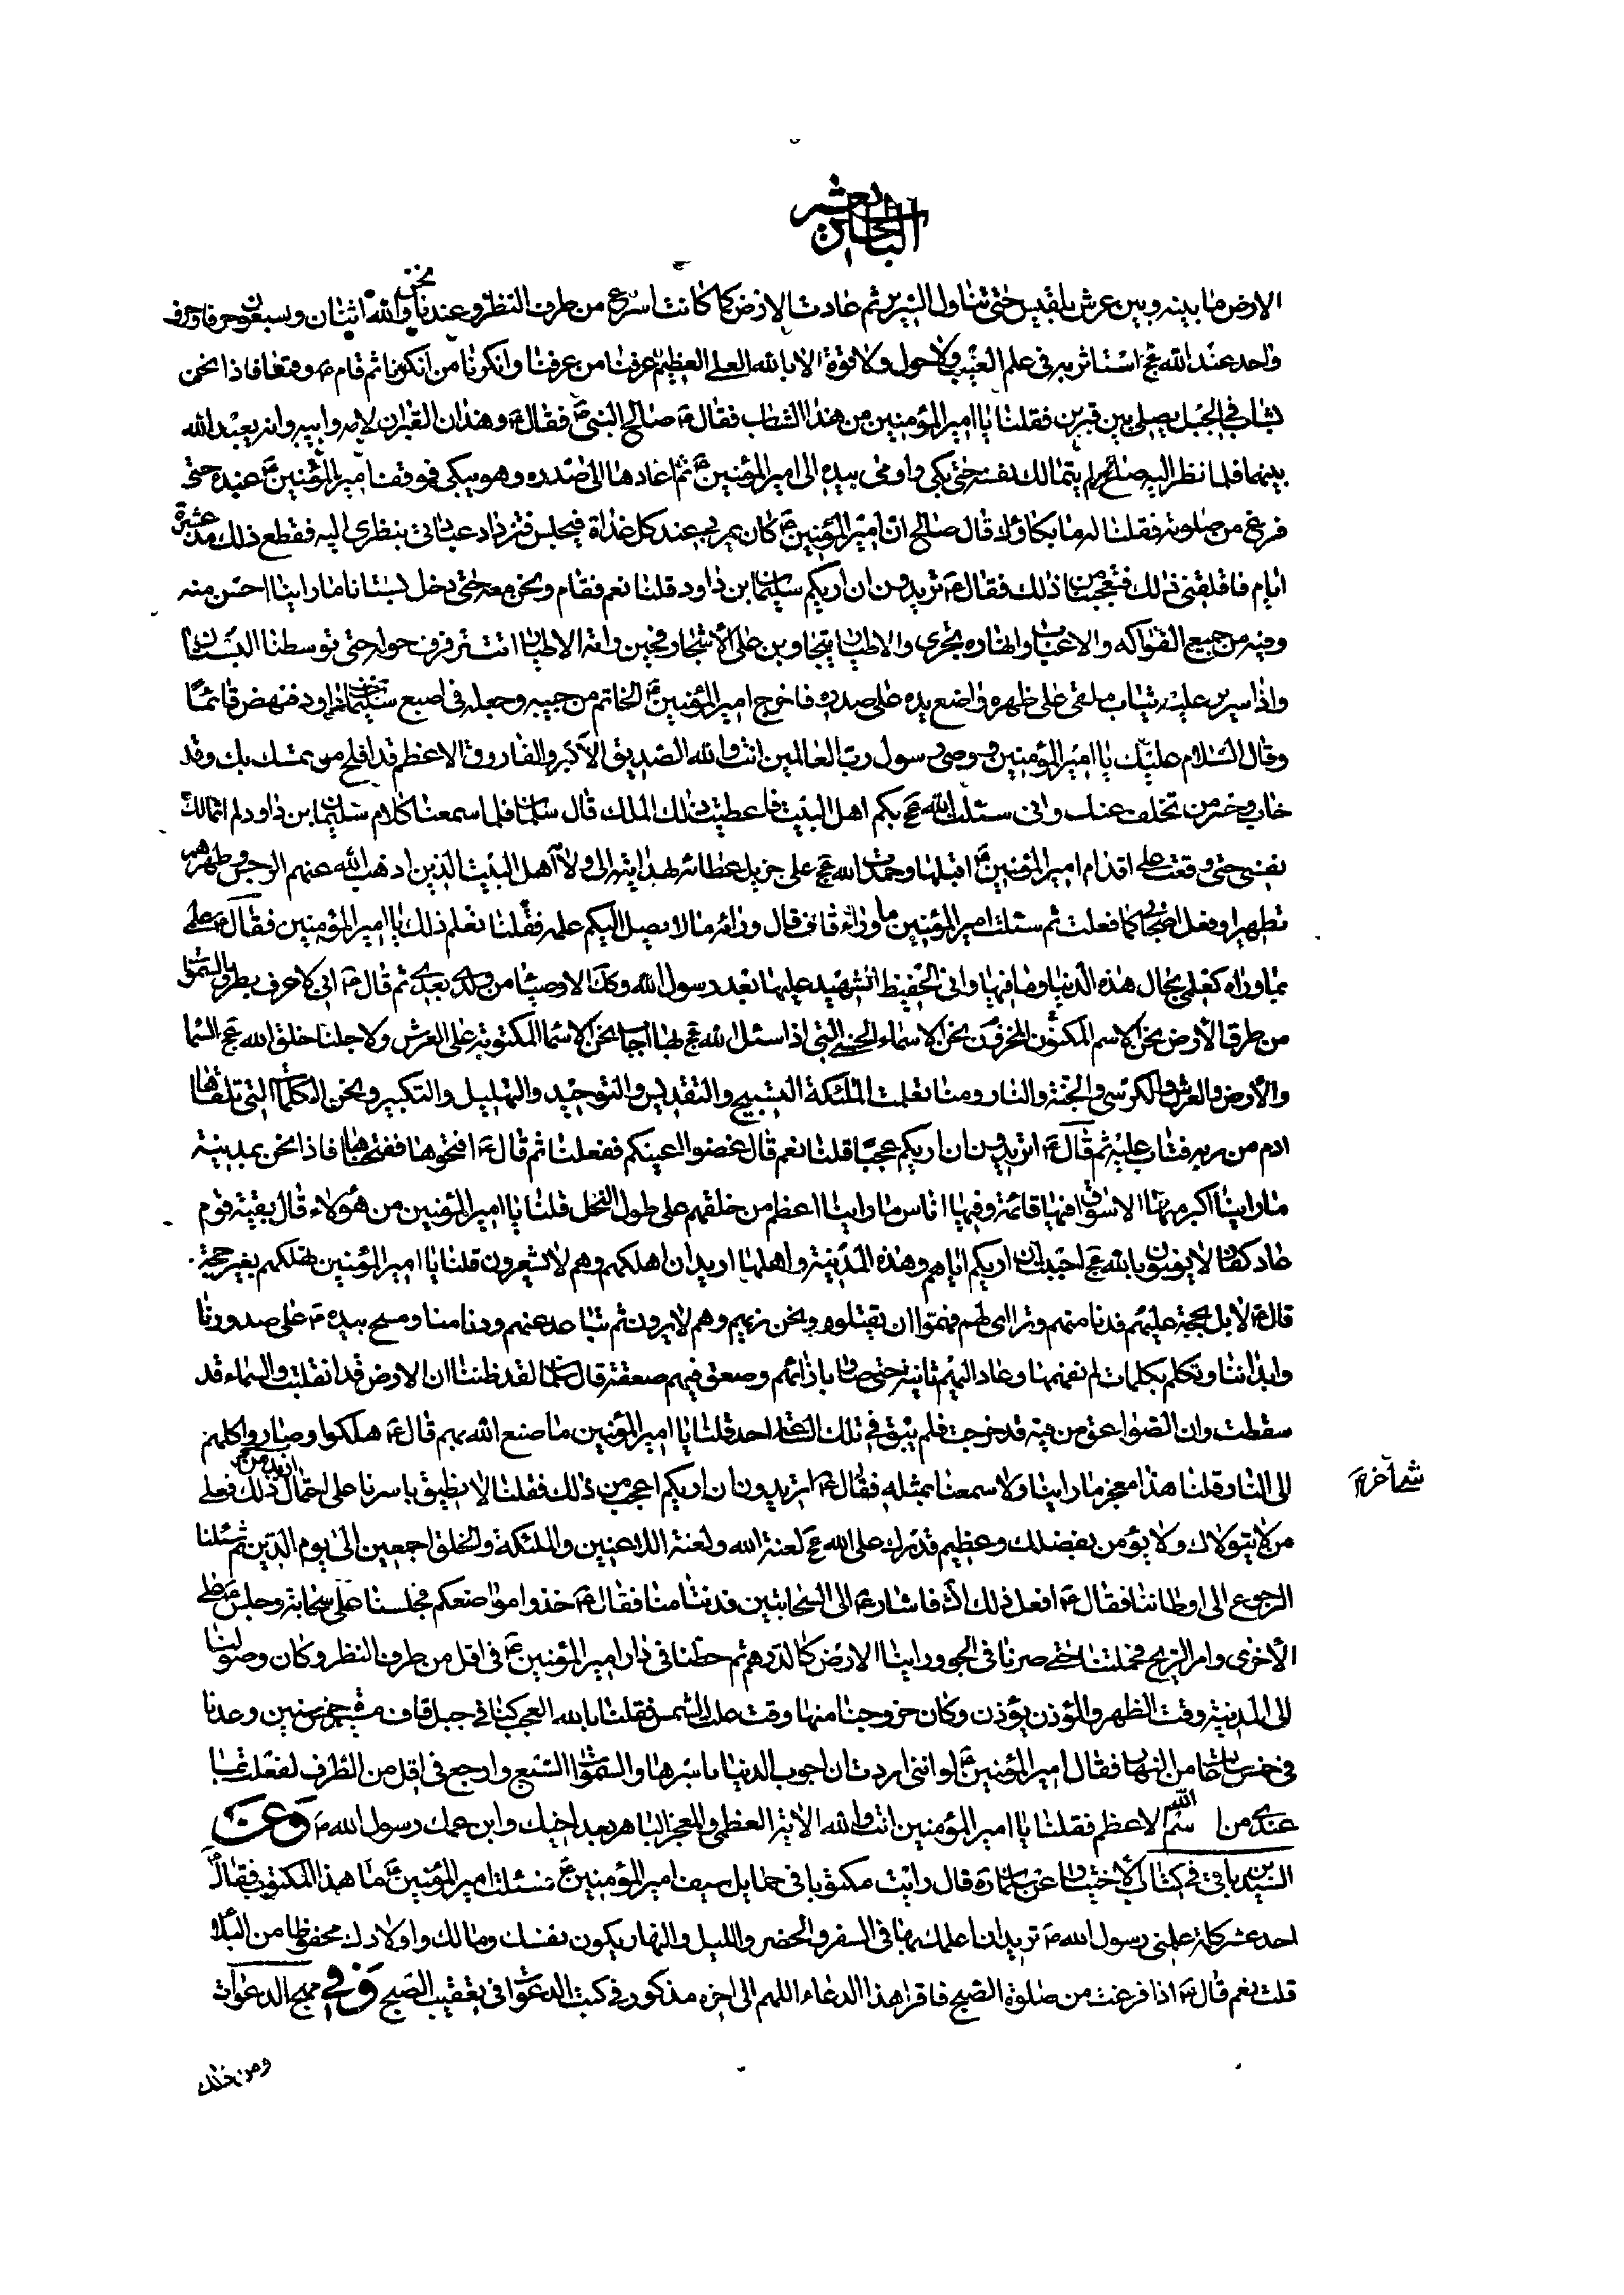 الباب الخامس عشر
الارض ما بينه وبين عرش بلقيس حتى تناول السرير ثم عادت الارض كما كانت اسرع من طرف النظر وعندنا نحن والله اثنان وسبعون حرفا وحرف
واحد عند الله عج استاثر به في علم الغيب ولا حول ولا قوة الا بالله العلي العظيم عرفنا من عرفنا وانكرنا من انكرنا ثم قام ع وقمنا فاذا نحن
بشاب في الجبل يصلي بين قبرين فقلنا يا امير المؤمنين من هذا الشاب فقال ع صالح النبي ع فقال ع وهذان القبران لامه وابيه وانه يعبد الله
بينهما فلما نظر اليه صالح لم يتمالك نفسه حتى بكى واومى بيده الى امير المؤمنين ع ثم اعادها الى صدره وهو يبكي فوقفنا امير المؤمنين ع عنده حتى
فرغ من صلوته فقلنا له ما بكاؤك قال صالح ان امير المؤمنين ع كان يمر بي عند كل غداة فيجلس فتزداد عبادتي بنظري اليه فقطع ذلك مذ عشرة
ايام فاقلقني ذلك فتعجبنا من ذلك فقال ع تريدون ان اريكم سليمان بن داود قلنا نعم فقام ونحن معه حتى دخل بستانا ما راينا احسن منه
وفيه من جميع الفواكه والاعناب وانهاره تجري والاطيار يتجاوبن على الاشجار فحين راته الاطيار اتت ترفرف حوله حتى توسطنا البستان
واذا سرير عليه شاب ملقى على ظهره واضع يده على صدره فاخرج امير المؤمنين ع الخاتم من جيبه وجعله في اصبع سليمان بن داود فنهض قائما
وقال السلام عليك يا امير المؤمنين ووصي رسول رب العالمين انت والله الصديق الاكبر والفاروق الاعظم قد افلح من تمسك بك وقد
خاب وخسر من تخلف عنك واني سئلت الله عج بكم اهل البيت فاعطيت ذلك الملك قال سلمان فلما سمعنا كلام سليمان بن داود لم اتمالك
نفسي حتى وقعت على اقدام امير المؤمنين ع اقبلها وحمدت الله عج على جزيل عطائه بهدايته الى ولاء اهل البيت الذين اذهب الله عنهم الرجس وطهرهم
تطهيرا وفعل اصحابي كما فعلت ثم سئلت امير المؤمنين ما وراء قاف قال وراءه ما لا يصل اليكم علمه فقلنا تعلم ذلك يا امير المؤمنين فقال ع علمي
بما وراه كعلمي بحال هذه الدنيا وما فيها واني الحفيظ الشهيد عليها بعد رسول الله وكذلك الاوصياء من ولدي بعدي ثم قال ع اني لاعرف بطرق السموات
من طرق الارض نحن الاسم المكنون المخزون نحن الاسماء الحسنى التي اذا سئل الله عج بها اجاب نحن الاسماء المكتوبة على العرش ولاجلنا خلق الله عج السماء
والارض والعرش والكرسي والجنة والنار ومنا تعلمت الملئكة التسبيح والتقديس والتوحيد والتهليل والتكبير ونحن الكلمات التي تلقاها
ادم من ربه فتاب عليه ثم قال ع اتريدون ان اريكم عجبا قلنا نعم قال غضوا اعينكم ففعلنا ثم قال ع افتحوها ففتحناها فاذا نحن بمدينة
ما راينا اكبر منها الاسواق فيها قائمة وفيها اناس ما راينا اعظم من خلقهم على طول النخل قلنا يا امير المؤمنين من هؤلاء قال بقية قوم
عاد كفار لا يؤمنون بالله عج احببت ان اريكم اياهم وهذه المدينة واهلها اريد ان اهلكهم وهم لا يشعرون قلنا يا امير المؤمنين تهلكهم بغير حجة
قال ع لا بل بحجة عليهم فدنا منهم وترااى لهم فهموا ان يقتلوه ونحن نريهم وهم لا يرون ثم تباعد عنهم ودنا منا ومسح بيده ع على صدورنا
وابداننا وتكلم بكلمات لم نفهمها وعاد اليهم ثانية حتى صار بازائهم وصعق فيهم صعقة قال سلمان لقد ظننا ان الارض قد انقلبت والسماء قد
سقطت وان الصواعق من فيه قد خرجت فلم يبق في تلك الساعة احد قلنا يا امير المؤمنين ما صنع الله بهم قال ع هلكوا وصاروا كلهم
الى النار قلنا هذا معجز ما راينا ولا سمعنا بمثله فقال ع اتريدون ان اريكم اعجب من ذلك فقلنا لا نطيق باسرنا على احتمال ازيد من ذلك فعلى
من لا يتولاك ولا يؤمن بفضلك وعظيم قدرك على الله عج لعنة الله ولعنة اللاعنين والملئكة والخلق اجمعين الى يوم الدين ثم سئلنا
الرجوع الى اوطاننا فقال ع افعل ذلك انشاء فاشار ع الى السحابتين فدنتا منا فقال ع خذوا مواضعكم فجلسنا على سحابة وجلس ع على
الاخرى وامر الريح فحملتنا حتى صرنا في الجو وراينا الارض كالدرهم ثم حطنا في دار امير المؤمنين ع في اقل من طرف النظر وكان وصولنا
الى المدينة وقت الظهر والمؤذن يؤذن وكان خروجنا منها وقت علت الشمس فقلنا بالله العجب كنا في جبل قاف مسيرة خمس سنين وعدنا
في خمس ساعات من النهار فقال امير المؤمنين ع لو انني اردت ان اجوب الدنيا باسرها والسموات السبع وارجع في اقل من الطرف لفعلت بما
عندي من اسم الله الاعظم فقلنا يا امير المؤمنين انت والله الاية العظمى والمعجز الباهر بعد اخيك وابن عمك رسول الله ص وعن
السيد بن باقي في كتاب الاختيار عن سلمان قال رايت مكتوبا في حمايل سيف امير المؤمنين ع فسئلت امير المؤمنين ع ما هذا المكتوب فقال
احد عشر كلمة علمني رسول الله ص تريد ان اعلمك بها في السفر والحضر والليل والنهار يكون نفسك ومالك واولادك محفوظا من البلاء
قلت نعم قال ع اذا فرغت من صلوة الصبح فاقرا هذا الدعاء اللهم الى اخره مذكور في كتب الدعوات في تعقيب الصبح وفي مهج الدعوات
ومن ذلك